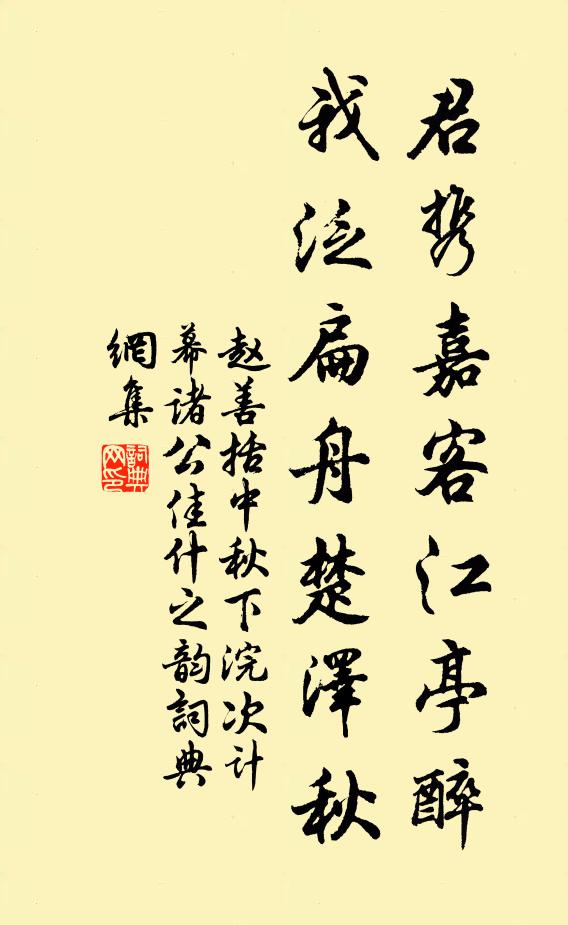 君携嘉客江亭醉
我泛扁舟楚澤秋
赵善括中秋下浣次计
幕诸公佳什之韵詞典
網集
詞典
网印